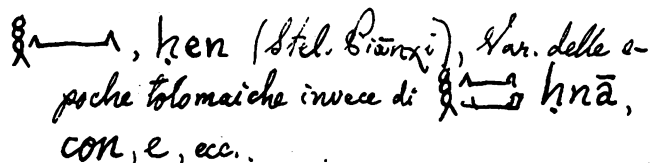 𓎛𓈖, ḥen (Stel. Piānχi), Var. delle e-
poche tolomaiche invece di 𓎛𓈖𓂝 ḥnā,
con, e, ecc.